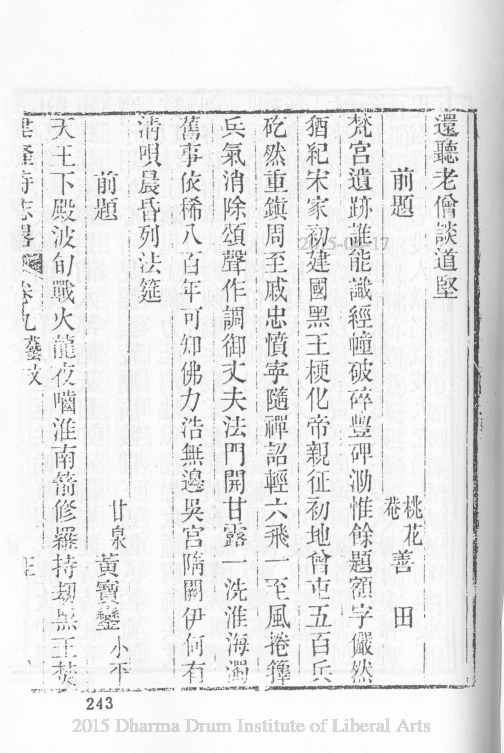 還聽老僧談道堅
前題
桃花菴 善田
梵宮遺跡誰能識經幢破碎豐碑泐惟餘題額字儼然
猶紀宋家初建國黑王梗化帝親征初地曾屯五百兵
矻然重鎮周至戚忠憤寧隨禪詔輕六飛一至風捲籜
兵氣消除頌聲作調御丈夫法門開甘露一洗淮海濁
舊事依稀八百年可知佛力浩無邊吳宮隋闕伊何有
清唄晨昏列法筵
前題
甘泉 黃寶鑾 小平
天王下殿波旬戰火龍夜嚙淮南箭修羅持刼黑王焚
建隆寺志畧 卷九藝文
243
2015-04-17
2015 Dharma Drum Institute of Liberal Arts